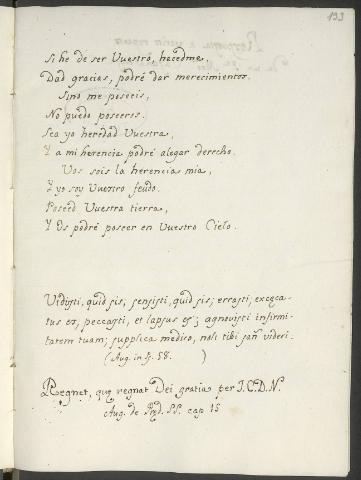 193
Si he de ser Vuestro, hacedme.
Dad gracias, podré dar merecimientos.
Sino me poseeis,
No puedo poseeros.
Sea yo heredad Vuestra,
Y a mi herencia podré alegar derecho.
Vos sois la herencia mia,
Y yo soy Vuestro feudo.
Poseed Vuestra tierra,
Y Os podré poseer en Vuestro Cielo.
Vidisti, quid sis; sensisti, quid sis; errasti, excęca-
tus es, peccasti, et lapsus es; agnovisti infirmi-
tatem tuam; supplica medico, noli tibi san9 videri.
(Aug. in ψ. 58. )
Regnet, quę regnat Dei gratia per J.C.D.N.
Aug. de Pręd. SS. cap 15